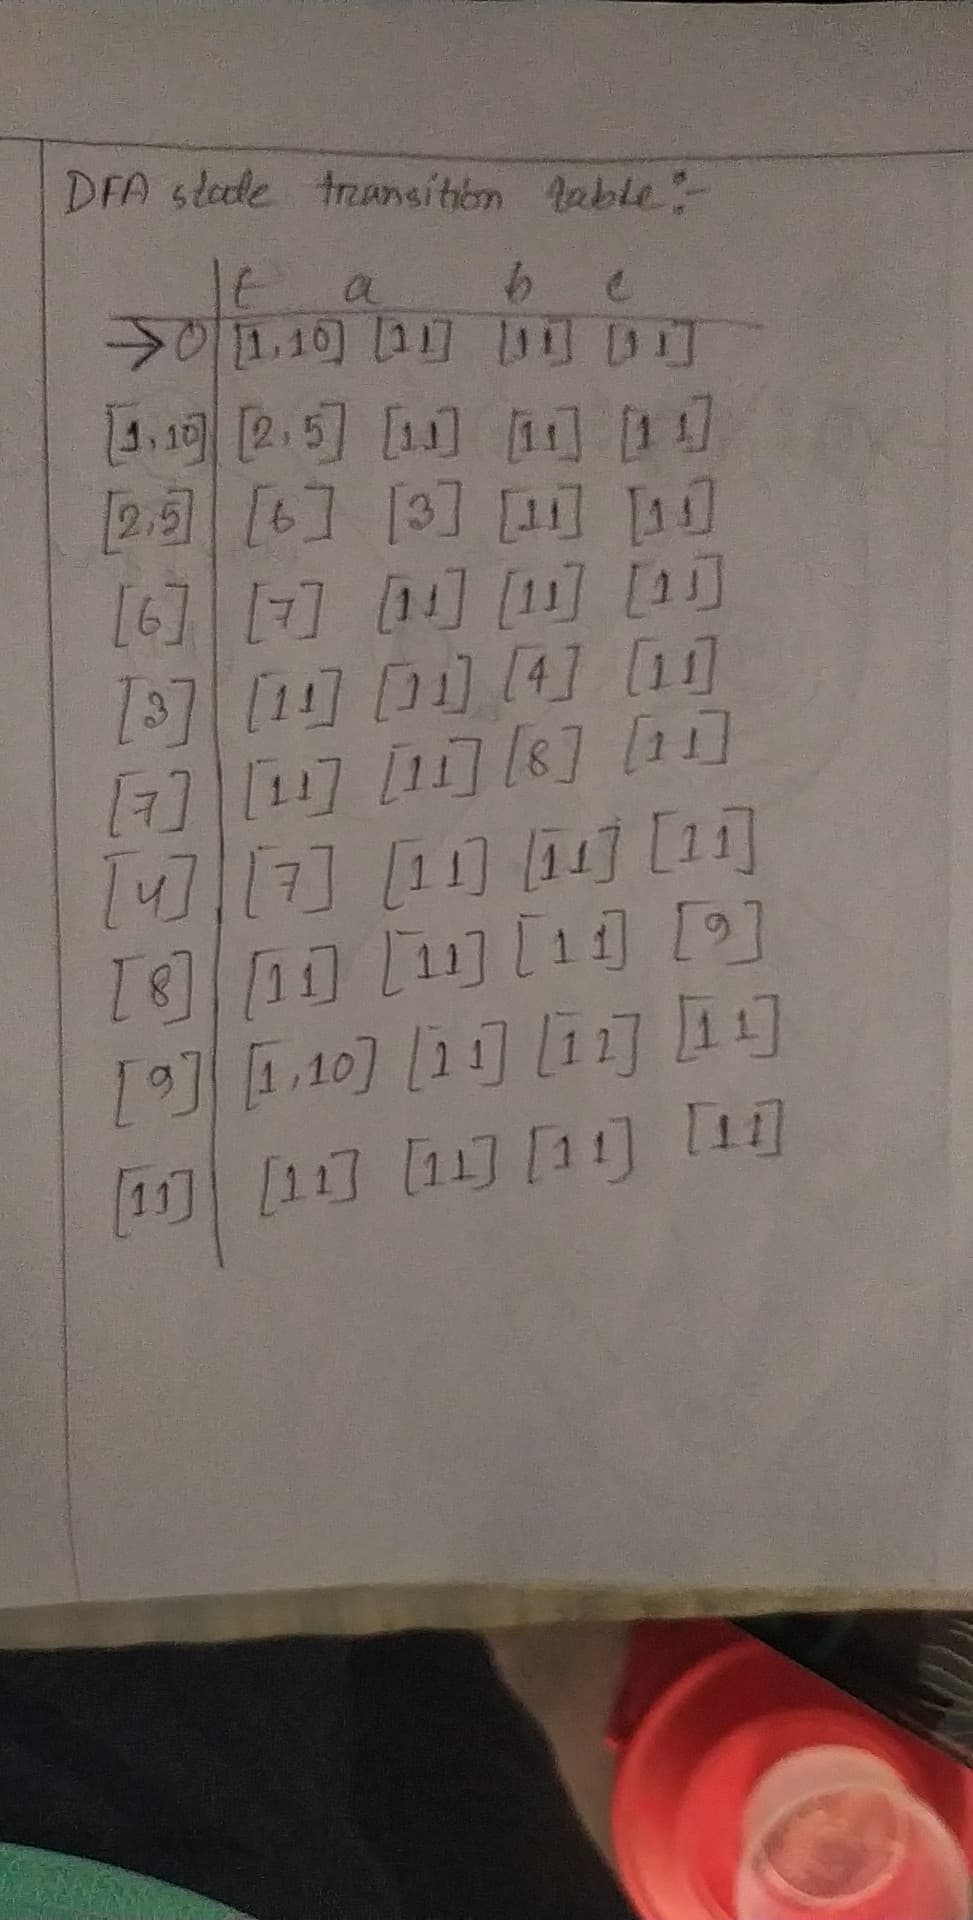 DFA state transition table :-
t a b c
→0 [1,10] [11] [11] [11]
[1,10] [2,5] [11] [11] [11]
[2,5] [6] [3] [11] [11]
[6] [7] [11] [11] [11]
[3] [11] [11] [4] [11]
[7] [11] [11] [8] [11]
[4] [7] [11] [11] [11]
[8] [11] [11] [11] [9]
[9] [1,10] [11] [11] [11]
[11] [11] [11] [11] [11]